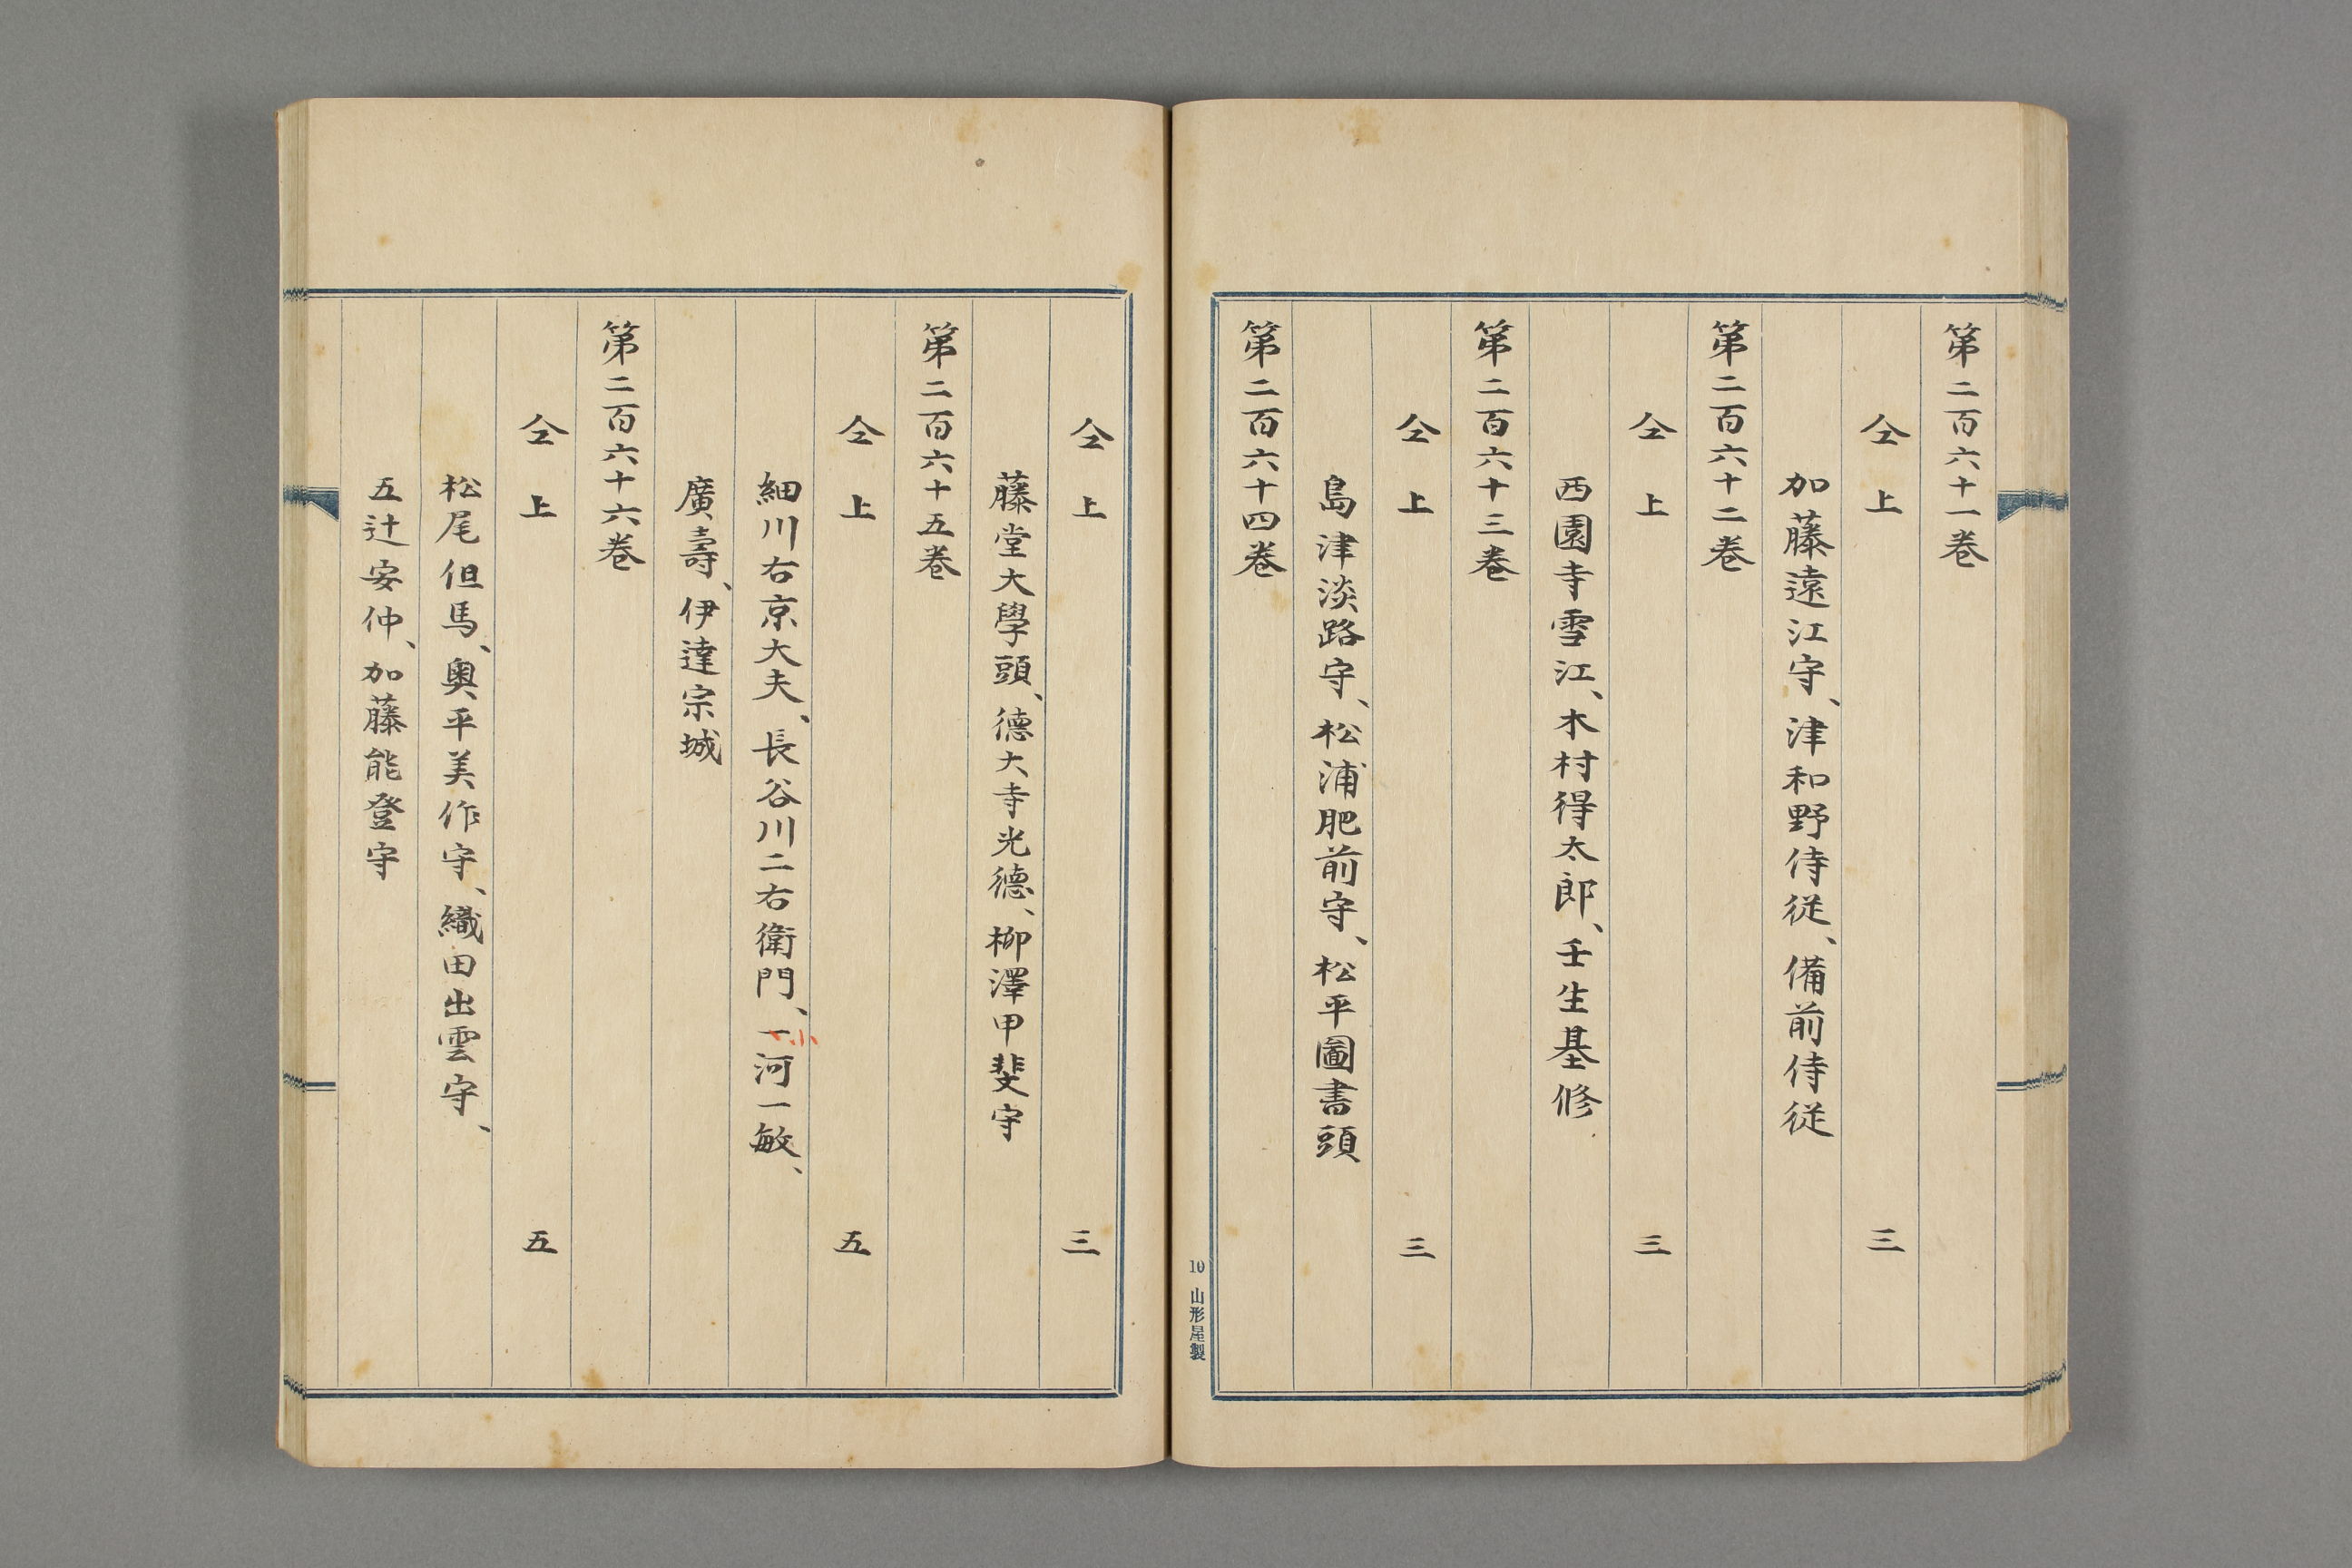 第二百六十一巻
仝上 三
加藤遠江守、津和野侍従、備前侍従
第二百六十二巻
仝上 三
西園寺雪江、木村得太郎、壬生基修
第二百六十三巻
仝上 三
島津淡路守、松浦肥前守、松平圖書頭
第二百六十四巻
10 山形屋製
仝上 三
藤堂大學頭、德大寺光德、柳澤甲斐守
第二百六十五巻
仝上 五
細川右京大夫、長谷川二右衛門、一小河一敏、
廣壽、伊達宗城
第二百六十六巻
仝上 五
松尾但馬、奥平美作守、織田出雲守、
五辻安仲、加藤能登守